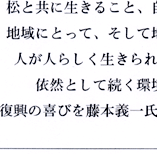 松と共に生きること、
地域にとって、そして
人が人らしく生きられ
依然として続く環
復興の喜びを藤本義一氏